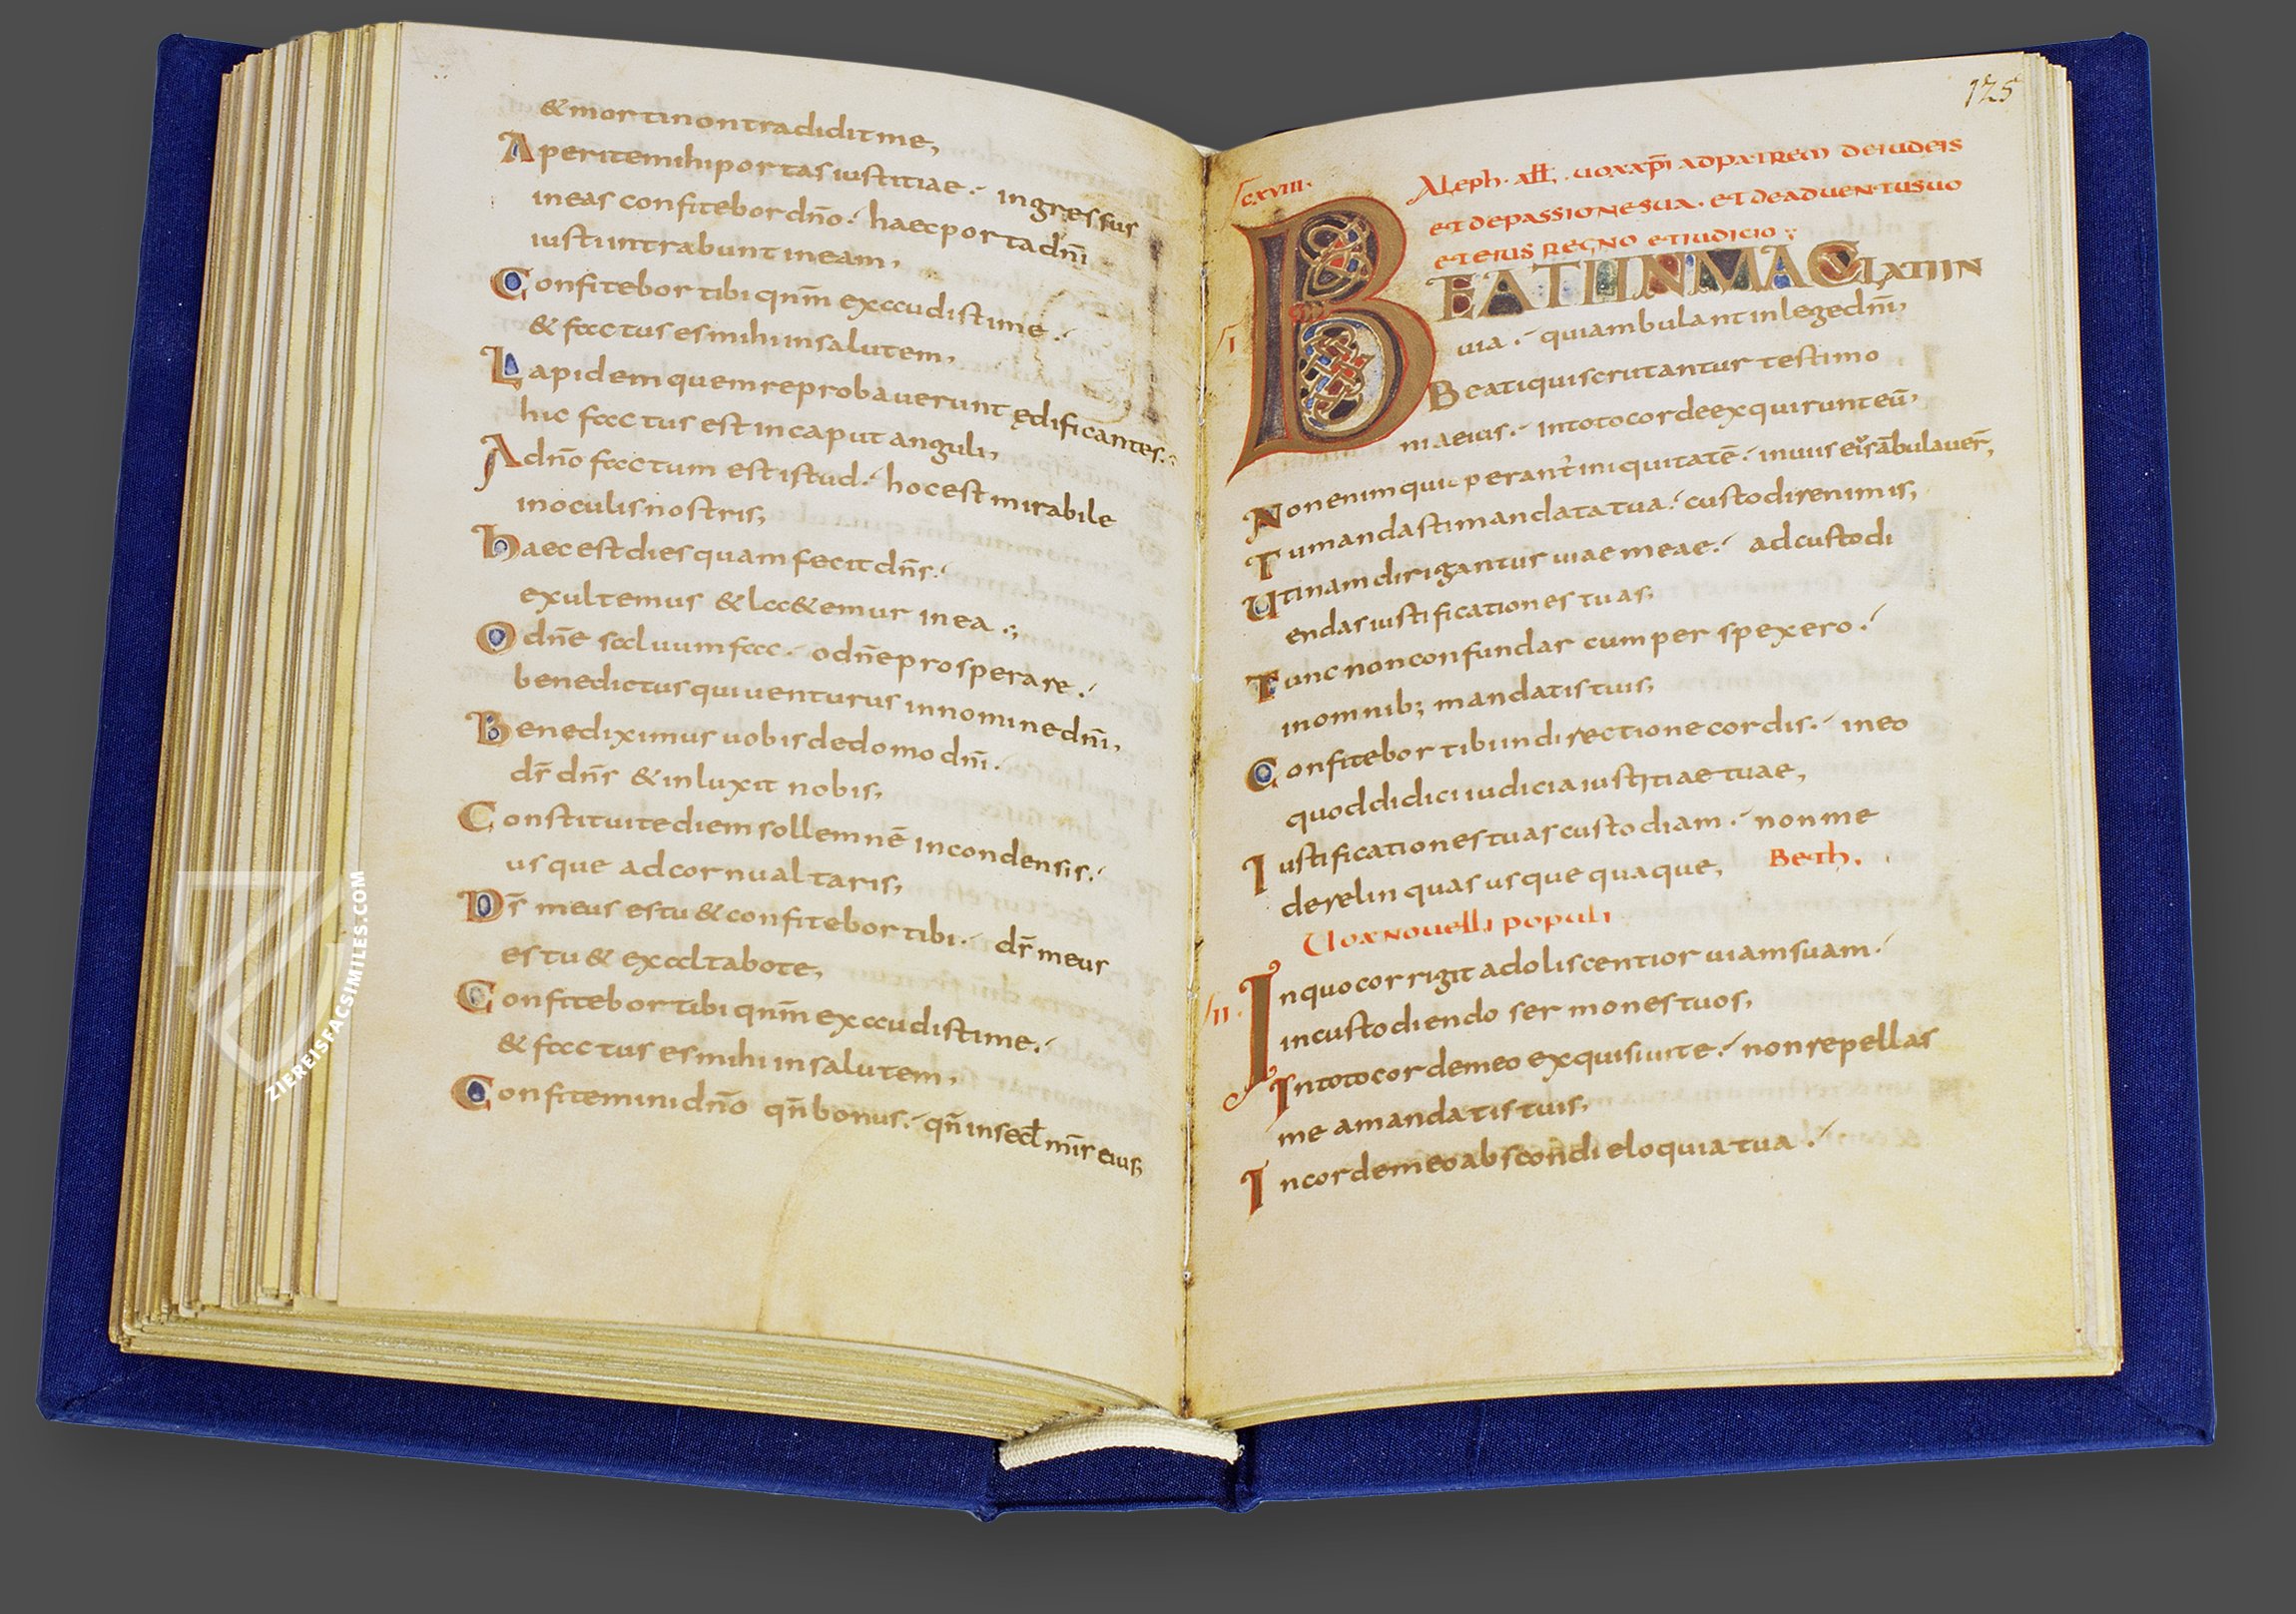 & morti non tradidit me,
Aperite mihi portas iustitiae. ingressus
in eas confitebor dn̄o. haec porta dn̄i
iusti intrabunt in eam,
Confitebor tibi qn̄m exaudisti me.
& factus es mihi in salutem,
Lapidem quem reprobauerunt ędificantes.
hic factus est in caput anguli,
A dn̄o factum est istud. hoc est mirabile
in oculis nostris,
Haec est dies quam fecit dn̄s.
exultemus & laetemur in ea.,
O dn̄e saluum fac. o dn̄e prosperare.
benedictus qui uenturus in nomine dn̄i,
Benediximus uobis de domo dn̄i.
ds̄ dn̄s & inluxit nobis,
Constituite diem sollemnē in condensis.
usque ad cornu altaris,
Ds̄ meus es tu & confitebor tibi. ds̄ meus
es tu & exaltabo te,
Confitebor tibi qn̄m exaudisti me.
& factus es mihi in salutem,
Confitemini dn̄o qn̄ bonus. qn̄ in secl̄ mīs eius,
ZIEREISFACSIMILES.COM
125
CXVIII.
Aleph. all̄, uox xp̄i ad patrem de iudeis
et de passione sua. et de aduentu suo
et eius regno et iudicio
I
BEATI INMACULATI IN
uia. qui ambulant in lege dn̄i,
Beati qui scrutantur testimo
nia eius. in toto corde exquirunt eū,
Non enim qui operant̄ iniquitatē. in uiis eius ābulauer̄,
Tu mandasti mandata tua. custodire nimis,
Utinam dirigantur uiae meae. ad custodi
endas iustificationes tuas,
Tunc non confundar cum perspexero.
in omnib; mandatis tuis,
Confitebor tibi in directione cordis. in eo
quod didici iudicia iustitiae tuae,
Iustificationes tuas custodiam. non me
derelinquas usquequaque, Beth.
Uox nouelli populi
II.
In quo corrigit adoliscentior uiam suam.
in custodiendo sermones tuos,
In toto corde meo exquisiui te. non repellas
me a mandatis tuis,
In corde meo abscondi eloquia tua.